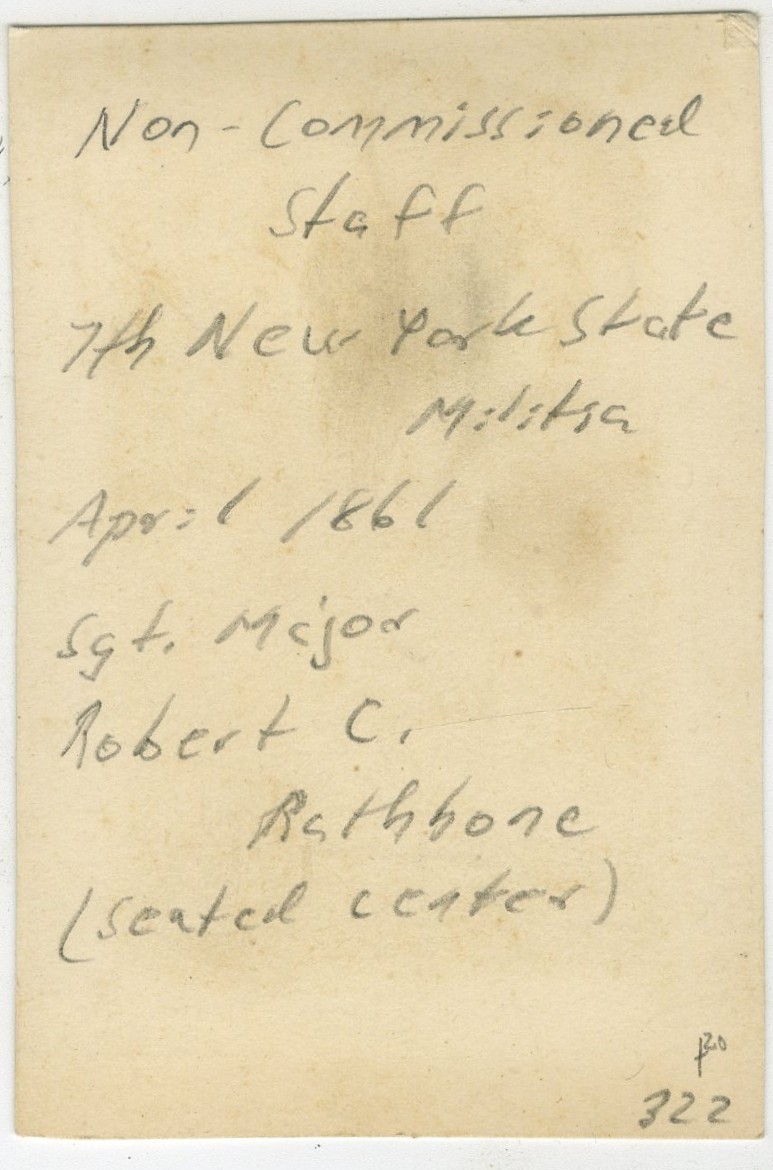 Non-Commissioned
Staff
7th New York State
Militia
April 1861
Sgt. Major
Robert C.
Rathbone
(seated center)
322